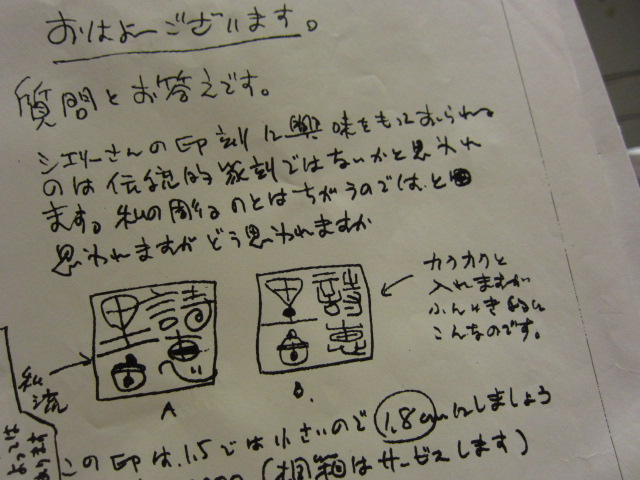 おはよーございます。
質問とお答えです。
シエリーさんの印刻に興味をもっておられる
のは伝統的篆刻ではないかと思われ
ます。私の彫るのとはちがうのでは、と
思われますがどう思われますか
カクカクと
入れますが
ふんいき的に
こんなのです。
私流
里詩恵
A
里詩恵
B.
この印は、1.5では小さいので1.8cmにしましょう
(桐箱はサービスします)